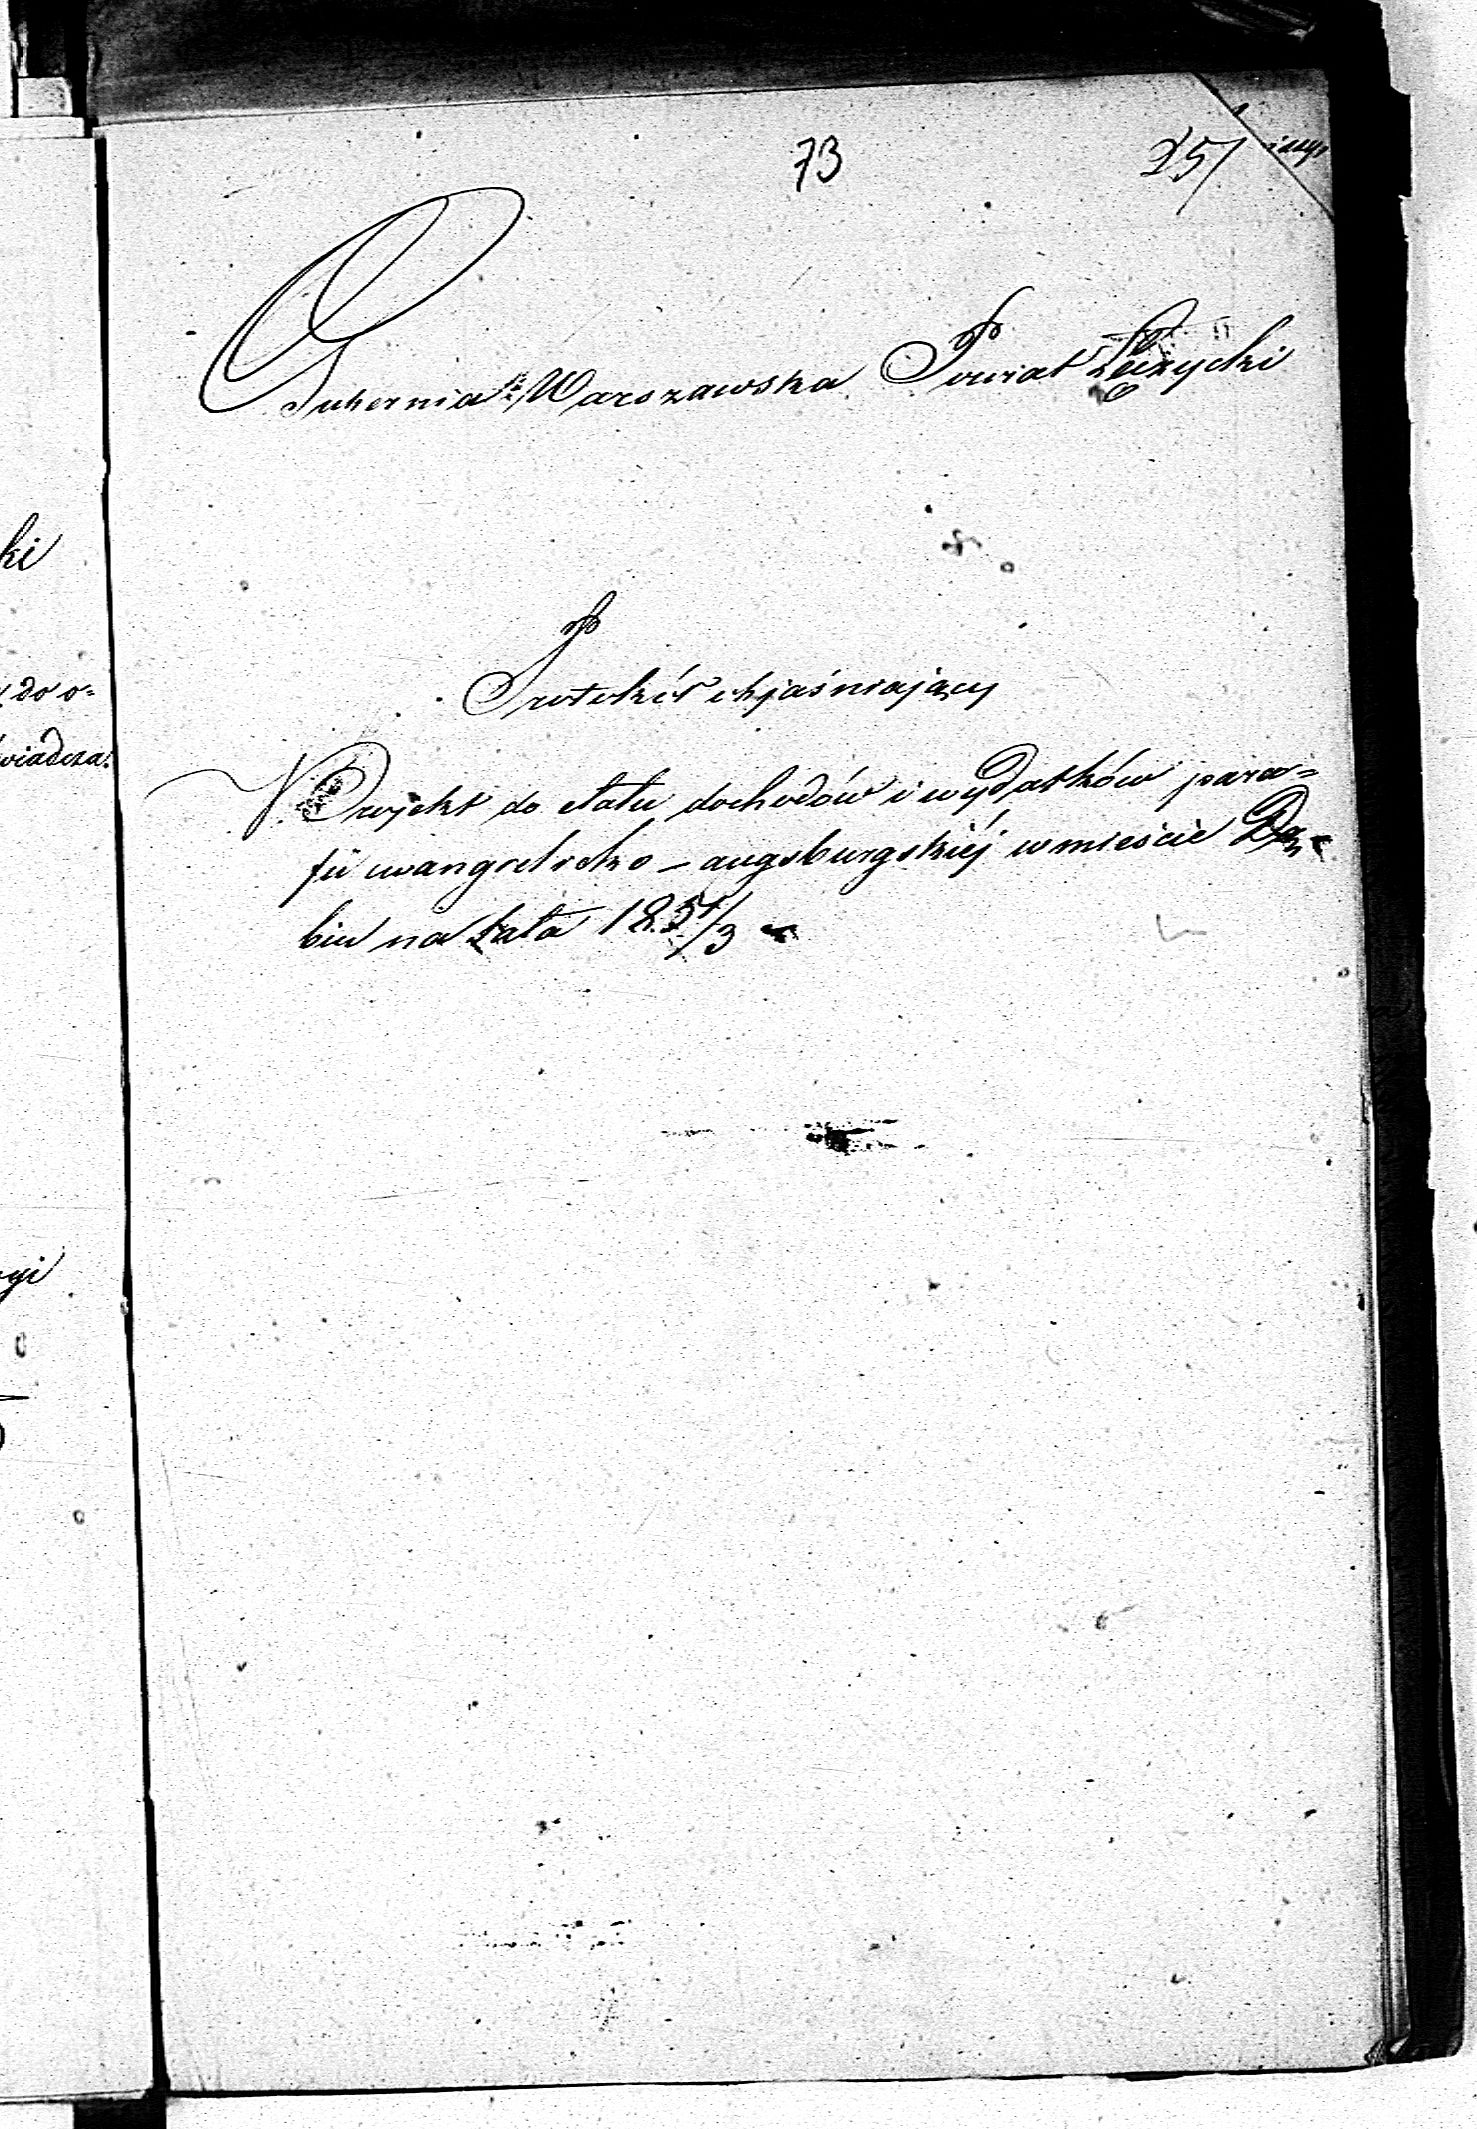 73 251
Gubernia Warszawska Powiat Łęczycki
Protokół objaśniający
Projekt do etatu dochodów i wydatków para=
fii ewangelicko – augsburgskiéj w mieście Dą=
biu na lata 1851/3
ki
do o=
wiadcza: